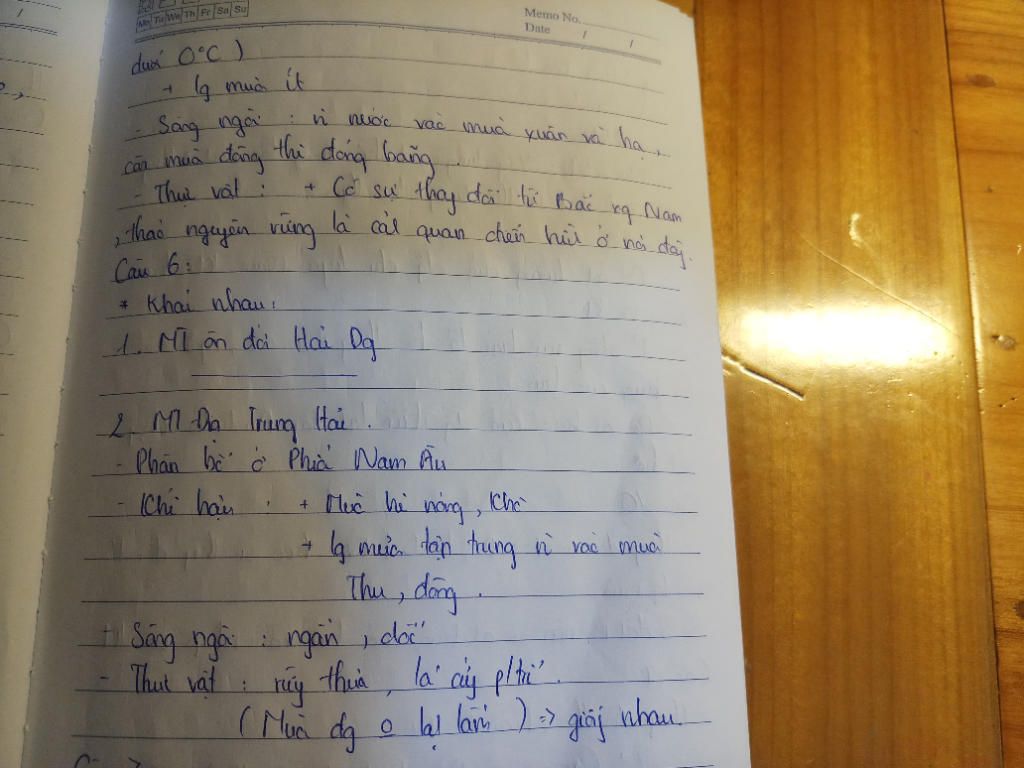 Mo Tu We Th Fr Sa Su
Memo No.
Date / /
dưới 0°C )
+ lg mưa ít
- Sông ngòi : n` nước vào mùa xuân và hạ,
còn mùa đông thì đóng băng.
- Thực vật : + Có sự thay đổi từ Bắc xg Nam
, thảo nguyên rừng là cảnh quan chiếm hữu ở nơi đây.
Câu 6:
* Khác nhau:
1. MT ôn đới Hải Dg
2. MT Dg Trung Hải.
- Phân bố ở Phía Nam Âu
- Khí hậu : + Mùa hè nóng, khô
+ lg mưa tập trung n` vào mùa
Thu, đông.
+ Sông ngòi : ngắn, dốc
- Thực vật : rừng thưa, lá cây p/tr
( Mùa đg o lạ lắm ) => giống nhau.